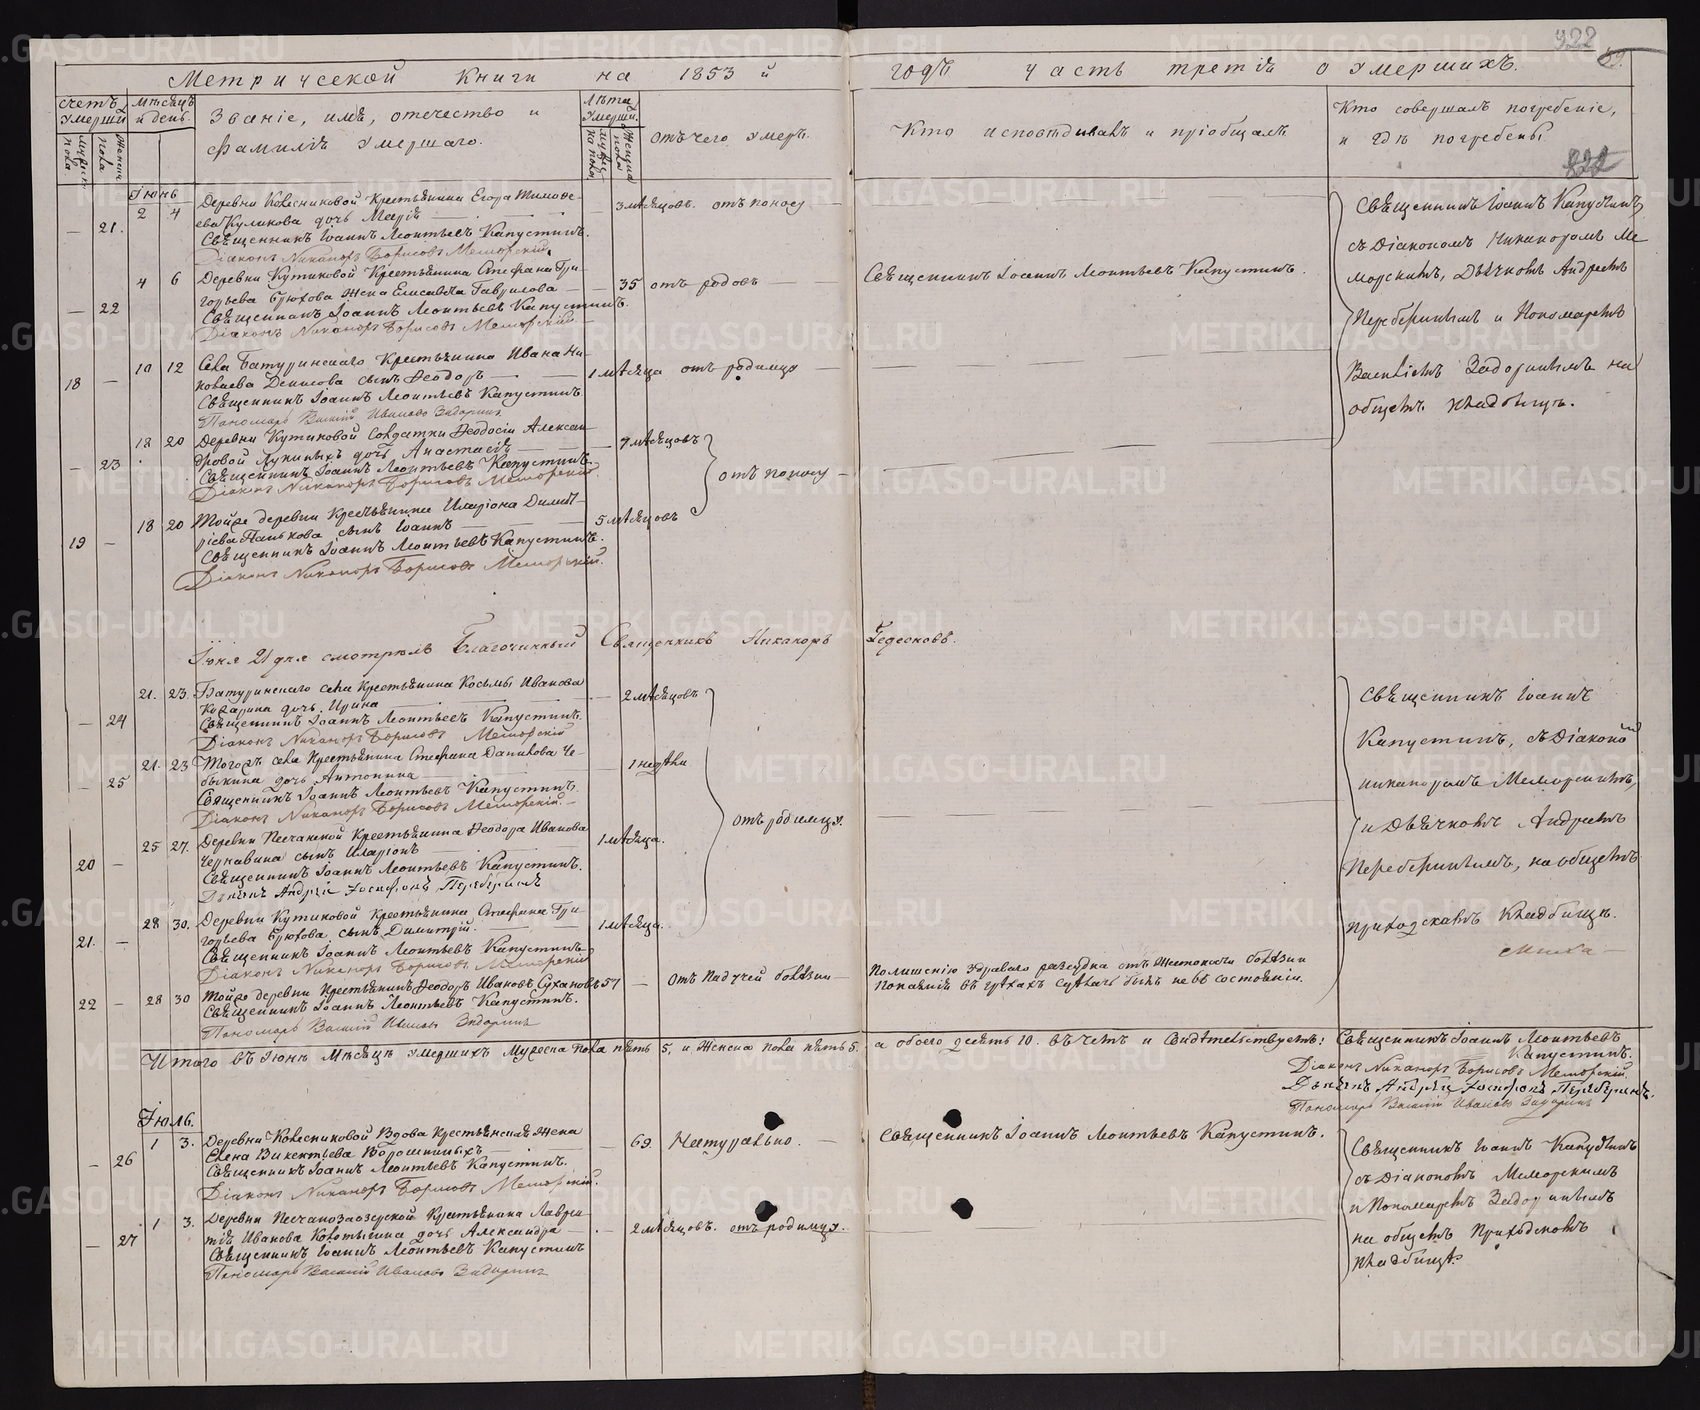 Метрической книги на 1853 й годъ часть третія о умершихъ.
922
59.
822
счетъ умерши
мѣсяцъ и день.
Званіе, имя, отечество и фамилія умершаго.
Лѣта умерши.
Отъ чего умеръ.
Кто исповѣдывалъ и пріобщалъ
Кто совершалъ погребеніе, и гдѣ погребены
мужеск. пола
женск. пола
Іюнь
— 21. 2 4 Деревни Колесниковой Крестьянина Егора Тимофе-
ева Куликова дочь Марія — — 3 мѣсяцовъ. отъ поносу —
Священникъ Іоаннъ Леонтьевъ Капустинъ.
Діаконъ Никаноръ Борисовъ Меморскій.
— 22 4 6 Деревни Кутиковой Крестьянина Стефана Гри-
горьева Брюхова жена Елисавета Гаврилова — — 35 отъ родовъ — Священникъ Іоаннъ Леонтьевъ Капустинъ.
Священникъ Іоаннъ Леонтьевъ Капустинъ.
Діаконъ Никаноръ Борисовъ Меморскій.
18 — 10 12 Села Батуринскаго Крестьянина Ивана Ни-
колаева Денисова сынъ Ѳеодоръ — 1 мѣсяца отъ родимцу —
Священникъ Іоаннъ Леонтьевъ Капустинъ
Пономарь Василій Ивановъ Задоринъ
— 23 18 20 Деревни Кутиковой Солдатки Ѳеодосіи Алексан-
дровой Лукиныхъ дочь Анастасія — — 7 мѣсяцовъ
Священникъ Іоаннъ Леонтьевъ Капустинъ.
Діаконъ Никаноръ Борисовъ Меморскій.
отъ поносу —
19 — 18 20 Тойже деревни Крестьянина Иларіона Димит-
ріева Панькова сынъ Іоаннъ — 5 мѣсяцовъ
Священникъ Іоаннъ Леонтьевъ Капустинъ.
Діаконъ Никаноръ Борисовъ Меморскій.
Священникъ Іоаннъ Капустинъ
съ Діакономъ Никаноромъ Ме
морскимъ, Дьячкомъ Андреемъ
Переберинымъ и Пономаремъ
Василіемъ Задоринымъ на
общемъ кладбищѣ.
Іюня 21 дня смотрѣлъ Благочинный Священникъ Никаноръ Гедеоновъ.
— 24 21. 23. Батуринскаго села Крестьянина Косьмы Иванова
дочь Ирина — — 2 мѣсяцовъ
Священникъ Іоаннъ Леонтьевъ Капустинъ.
Діаконъ Никаноръ Борисовъ Меморскій
— 25 21. 23 Тогожъ села Крестьянина Стефана Данилова Че-
быкина дочь Антонина — — 1 недѣли
Священникъ Іоаннъ Леонтьевъ Капустинъ.
Діаконъ Никаноръ Борисовъ Меморскій. —
отъ родимцу.
20 — 25 27. Деревни Песчанской Крестьянина Ѳеодора Иванова
Чернавина сынъ Иларіонъ 1 мѣсяца.
Священникъ Іоаннъ Леонтьевъ Капустинъ.
Дьячекъ Андрей Іосифовъ Переберинъ
21. — 28 30. Деревни Кутиковой Крестьянина Стефана Гри-
горьева Брюхова сынъ Димитрій. 1 мѣсяца.
Священникъ Іоаннъ Леонтьевъ Капустинъ
Діаконъ Никаноръ Борисовъ Меморскій
22 — 28 30 Тойже деревни Крестьянинъ Ѳеодоръ Ивановъ Сухановъ 57 — Отъ падучей болѣзни — По лишенію здраваго разсудка отъ жестокости болѣзни
покаянія въ грѣхахъ сдѣлать былъ не въ состояніи.
Священникъ Іоаннъ Леонтьевъ Капустинъ.
Пономарь Василій Ивановъ Задоринъ
Священникъ Іоаннъ
Капустинъ, съ Діакономъ
Никаноромъ Меморскимъ,
и Дьячкомъ Андреемъ
Переберинымъ, на общемъ
приходскомъ кладбищѣ.
Итого въ Іюнѣ мѣсяцѣ умершихъ мужеска пола пять 5, и женска пола пять 5. а обоего десять 10. въ чемъ и свидѣтельствуемъ: Священникъ Іоаннъ Леонтьевъ
Капустинъ.
Діаконъ Никаноръ Борисовъ Меморскій.
Дьячекъ Андрей Іосифовъ Переберинъ.
Пономарь Василій Ивановъ Задоринъ
Іюль.
— 26 1 3. Деревни Колесниковой Вдова крестьянская жена
Елена Викентьева Ворошниныхъ — 69 Натурально. — Священникъ Іоаннъ Леонтьевъ Капустинъ.
Священникъ Іоаннъ Леонтьевъ Капустинъ.
Діаконъ Никаноръ Борисовъ Меморскій.
— 27 1 3. Деревни Песчаноозерской Крестьянина Лаврен-
тія Иванова дочь Александра — 2 мѣсяцовъ. отъ родимцу.
Священникъ Іоаннъ Леонтьевъ Капустинъ
Пономарь Василій Ивановъ Задоринъ
Священникъ Іоаннъ Капустинъ
съ Діакономъ Меморскимъ
и Пономаремъ Задоринымъ
на общемъ Приходскомъ
кладбищѣ.
METRIKI.GASO-URAL.RU